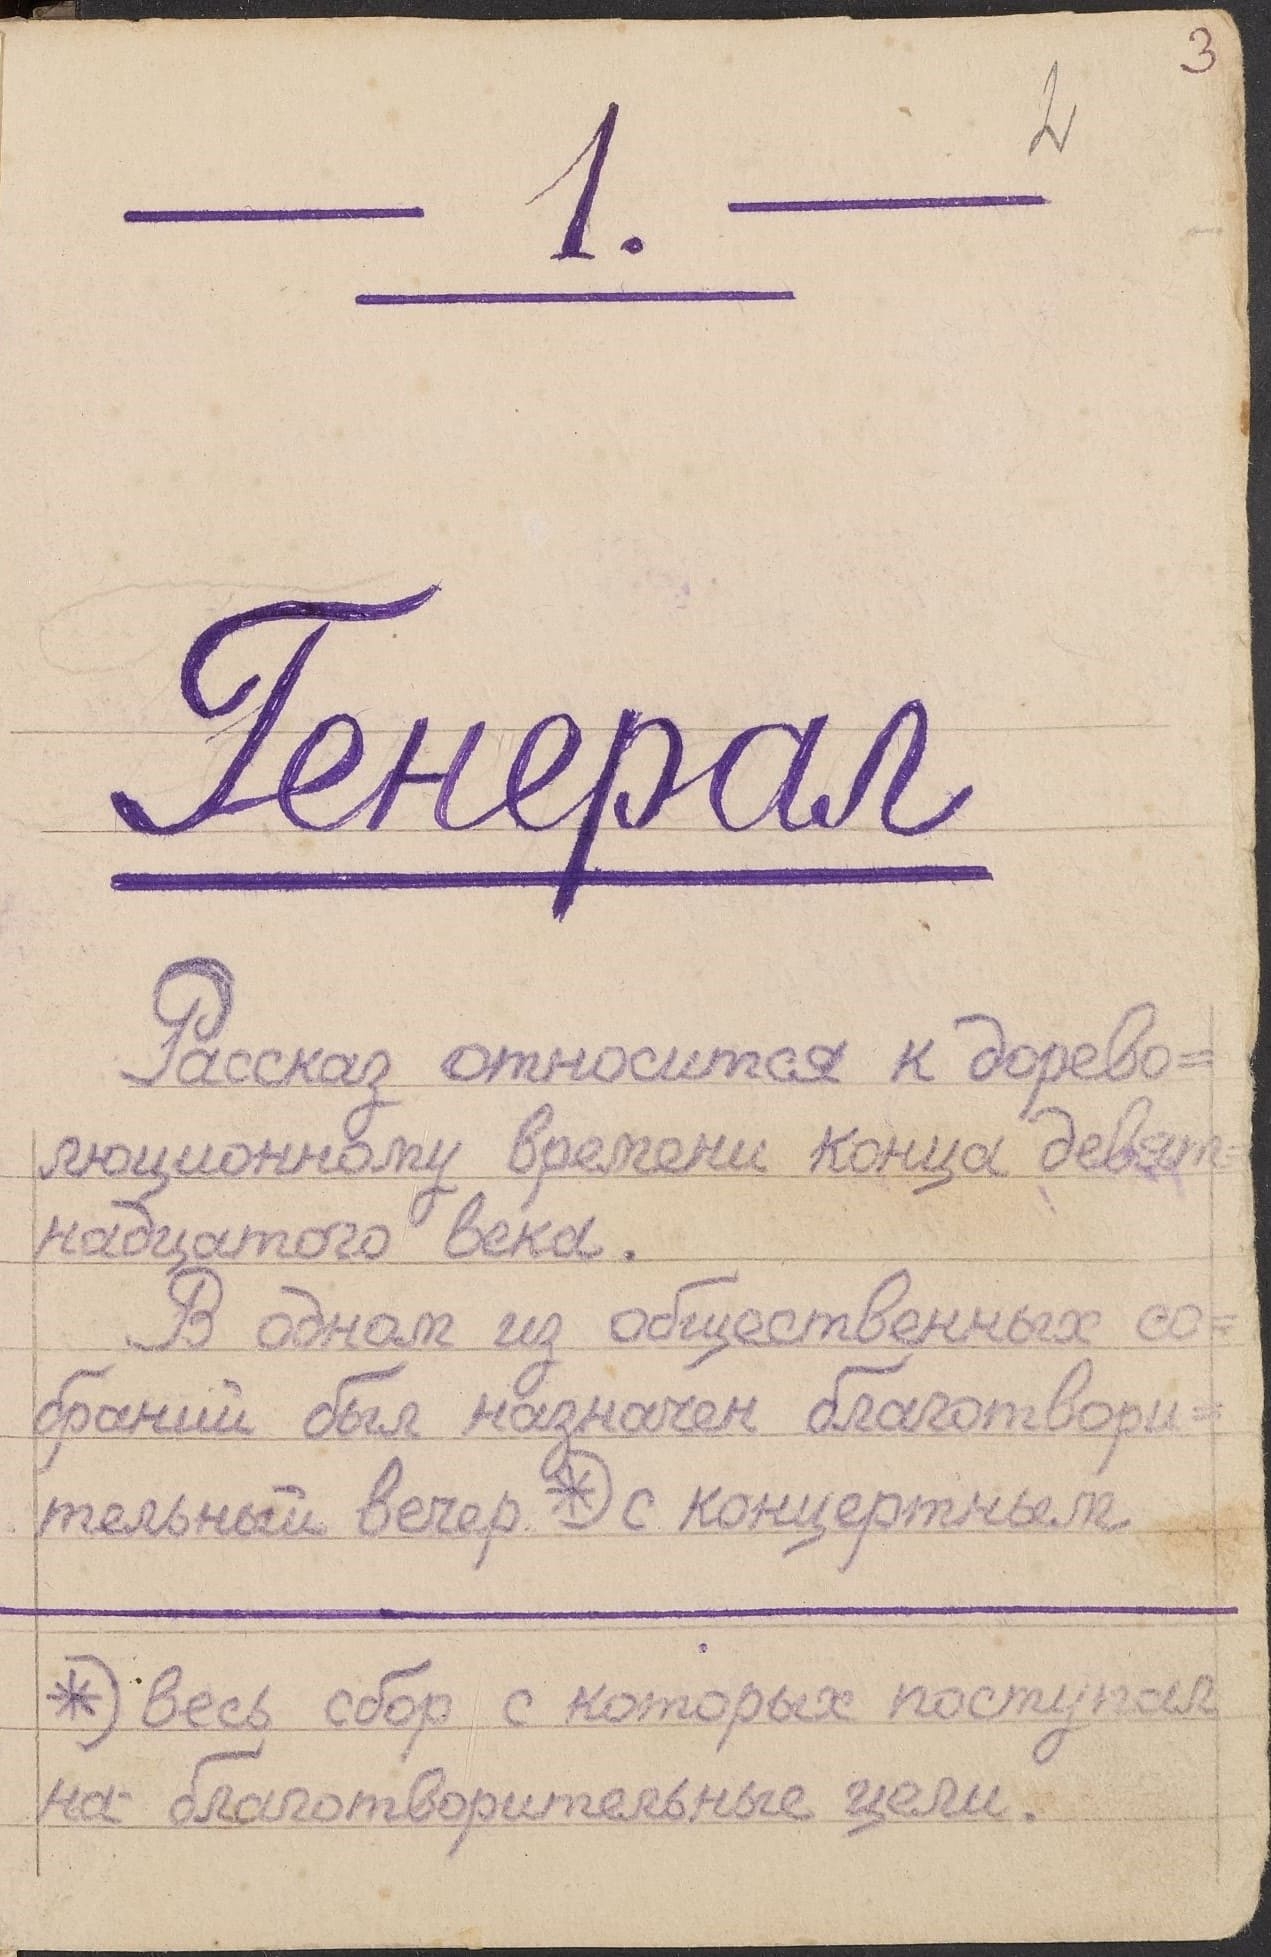 3
2
1.
Генерал
Рассказ относится к дорево=
люционному времени конца девят=
надцатого века.
В одном из общественных со=
браний был назначен благотвори=
тельный вечер *) с концертным
*) весь сбор с которых поступал
на благотворительные цели.